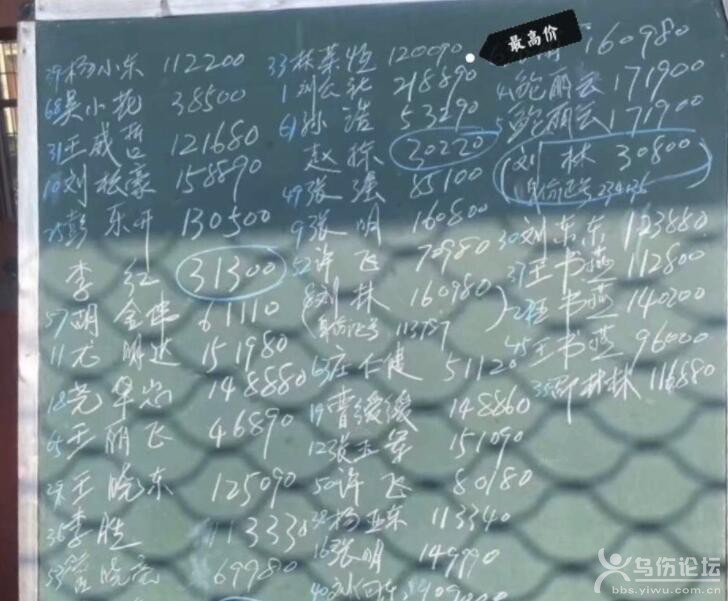 39杨小东 112200
68吴小花 38500
31王威哲 121680
10刘振豪 158890
25彭东升 130500
李红 31300
57胡金伟 61110
11尤 151980
18 148880
65王丽飞 46890
29王晓东 125090
36李胜 113330
53 晓 69980
33林 恒 120090
1刘 218890
61孙浩 53290
赵 30220
49张强 85100
9张明 160800
52许飞 70980
8刘林 160980
身份证号 113757
63庄仁健 51120
19曹缓缓 148860
12张玉军 151090
50许飞 80180
杨亚东 113340
16张明 149990
40刘
最高价
160980
4鲍丽云 171900
5鲍丽云 171900
刘林 30800
身份证号
30刘东东 123880
37王书燕 112800
书燕 140200
45王书燕 96000
35 林林 116880
乌伤论坛
bbs.yiwu.com.cn